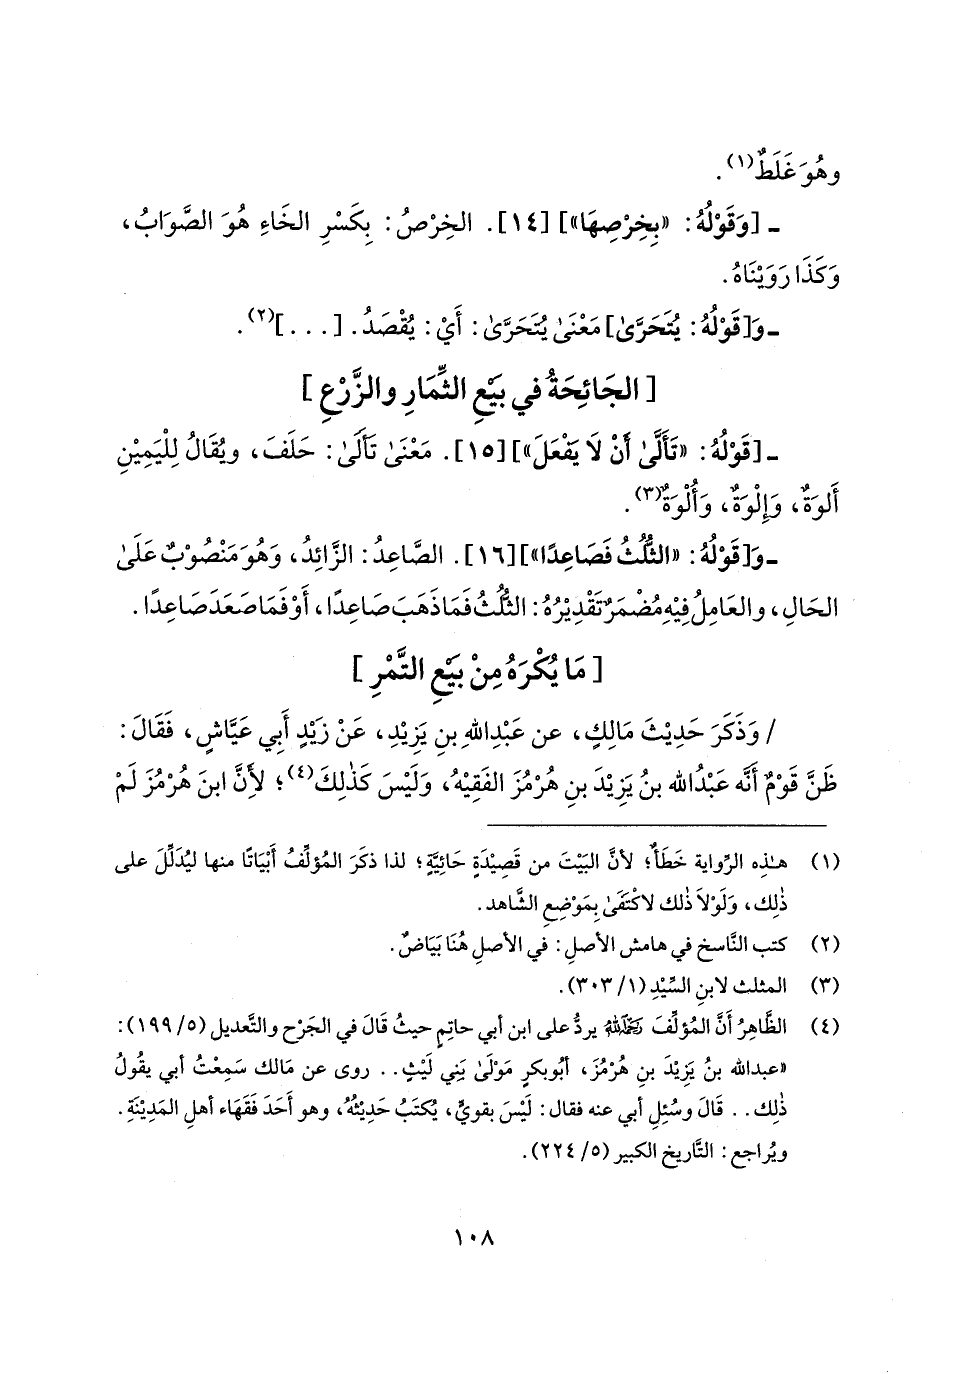 وهُوَ غَلَطٌ(١).
ـ [وَقَوْلُهُ: «بِخِرْصِهَا»] [١٤]. الخِرْصُ: بِكَسْرِ الخَاءِ هُوَ الصَّوَابُ،
وَكَذَا رَوَيْنَاهُ.
ـ وَ[قَوْلُهُ: يُتَحَرَّىٰ] مَعْنَىٰ يُتَحَرَّىٰ: أَيْ: يُقْصَدُ. [...](٢).
[الجَائِحَةُ في بَيْعِ الثِّمَارِ والزَّرْعِ]
ـ [قَوْلُهُ: «تَأَلَّىٰ أَنْ لَا يَفْعَلَ»] [١٥]. مَعْنَىٰ تَأَلَىٰ: حَلَفَ، ويُقَالُ لِلْيَمِيْنِ
أَلوَةٌ، وَإِلْوَةٌ، وَأُلْوَةٌ(٣).
ـ وَ[قَوْلُهُ: «الثُّلُثُ فَصَاعِدًا»][١٦]. الصَّاعِدُ: الزَّائِدُ، وَهُوَ مَنْصُوْبٌ عَلَىٰ
الحَالِ، والعَامِلُ فِيْهِ مُضْمَرٌ تَقْدِيْرُهُ: الثُّلُثُ فَمَا ذَهَبَ صَاعِدًا، أَوْ فَمَا صَعَدَ صَاعِدًا.
[مَا يُكْرَهُ مِنْ بَيْعِ التَّمْرِ]
/ وَذَكَرَ حَدِيْثَ مَالِكٍ، عن عَبْدِاللهِ بنِ يَزِيْدِ، عَنْ زَيْدٍ أَبي عَيَّاشٍ، فَقَالَ:
ظَنَّ قَوْمٌ أَنَّه عَبْدُالله بنُ يَزِيْدَ بنِ هُرْمُزَ الفَقِيْهُ، وَلَيْسَ كَذٰلِكَ(٤)؛ لأَنَّ ابنَ هُرْمُزَ لَمْ
(١) هـٰذِه الرِّواية خَطَأٌ؛ لأنَّ البَيْتَ من قَصِيْدَةٍ حَائِيَّةٍ؛ لذا ذكَرَ المُؤلِّفُ أَبْيَاتًا منها ليُدَلِّلَ على
ذٰلِك، وَلَوْلاَ ذٰلك لاكْتَفَىٰ بِمَوْضِعِ الشَّاهد.
(٢) كتب النَّاسخ في هامش الأصلِ: في الأصلِ هُنَا بَيَاضٌ.
(٣) المثلث لابنِ السِّيْدِ (١/ ٣٠٣).
(٤) الظَّاهِرُ أَنَّ المُؤلِّفَ رَحِمَهُ اللهُ يردُّ على ابن أبي حاتِمٍ حيثُ قَالَ في الجَرْح والتَّعديل (٥/ ١٩٩):
«عبدالله بنُ يَزِيْدَ بنِ هُرْمُزَ، أبُوبكرٍ مَوْلَىٰ بَنِي لَيْثٍ.. روى عن مَالك سَمِعْتُ أبي يقُولُ
ذٰلك.. قَالَ وسُئِلِ أبي عنه فقال: لَيْسَ بقويٍّ، يُكتَبُ حَدِيْثُهُ، وهو أَحَدَ فَقَهَاء أهلِ المَدِيْنَةِ.
ويُراجع: التَّاريخ الكبير (٥/ ٢٢٤).
١٠٨